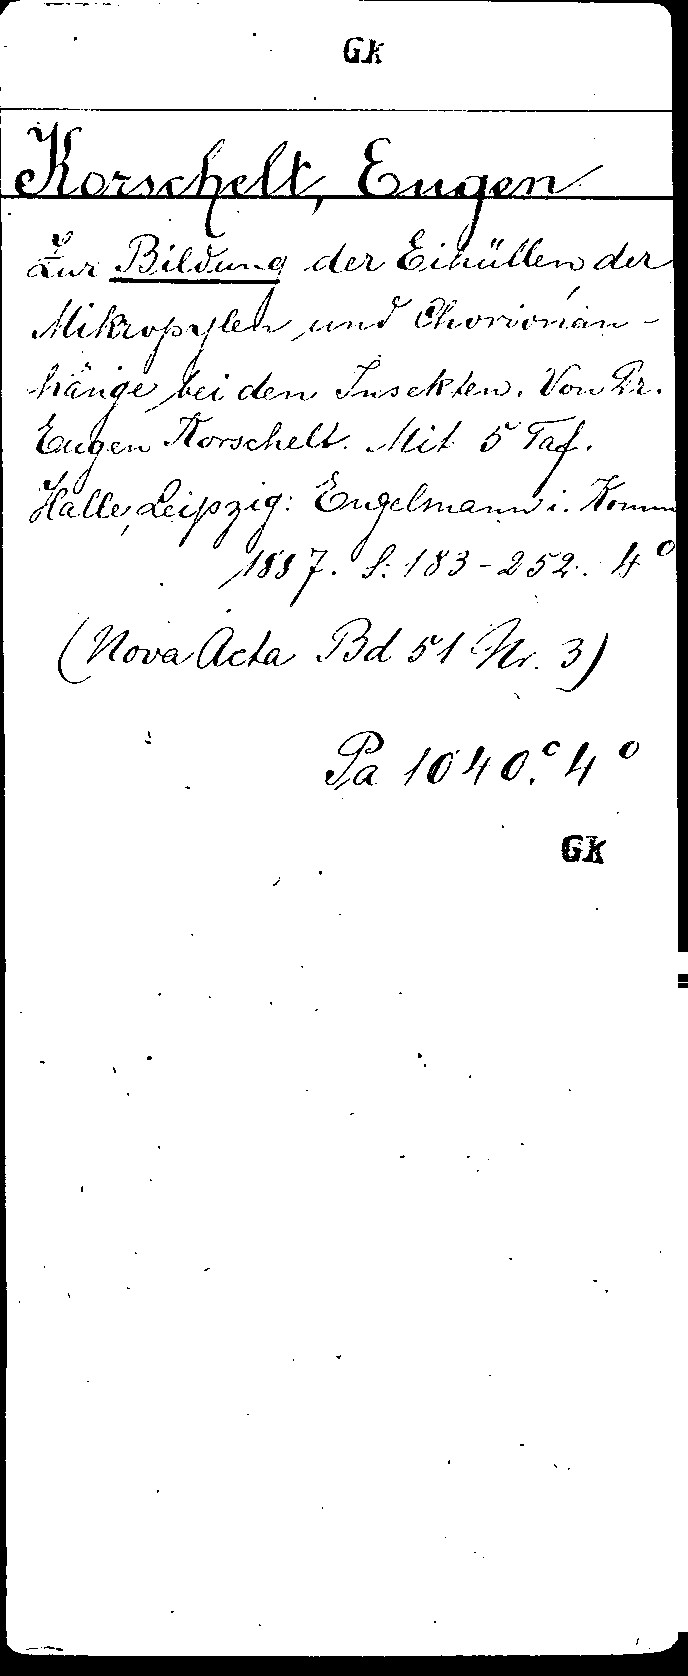 GK
Korschelt, Eugen
Zur Bildung der Eihüllen, der
Mikropylen und Chorionan-
hänge bei den Insekten. Von Dr.
Eugen Korschelt. Mit 5 Taf.
Halle, Leipzig: Engelmann i. Komm
1887. S. 183-252. 4°
(Nova Acta Bd 51 Nr. 3)
Pa 1040.c 4°
GK